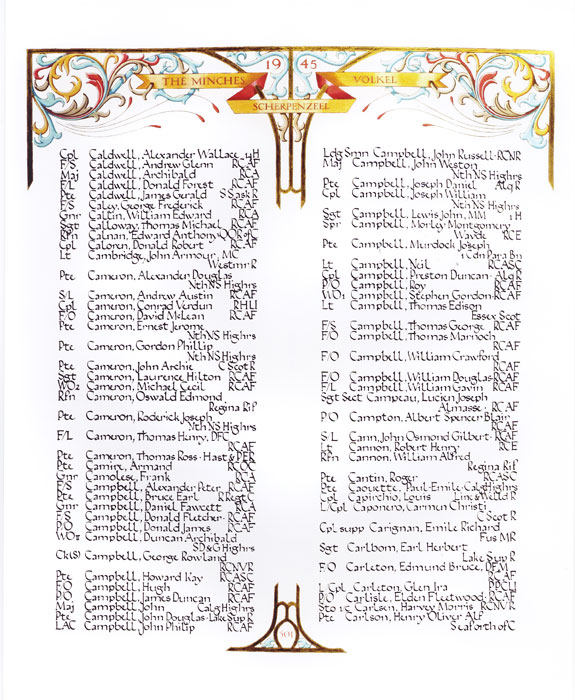 THE MINCHES 19 45 VOLKEL
SCHERPENZEEL
Cpl Caldwell, Alexander Wallace 14H
F/S Caldwell, Andrew Glenn RCAF
Maj Caldwell, Archibald RCA
F/L Caldwell, Donald Forest RCAF
Pte Caldwell, James Gerald S Sask R
F/S Caley, George Frederick RCAF
Gnr Caltin, William Edward RCA
Sgt Calloway, Thomas Michael RCAF
Rfn Calnan, Edward Anthony QOR of C
Cpl Caloren, Donald Robert RCAF
Lt Cambridge, John Armour, MC
Westmr R
Pte Cameron, Alexander Douglas
Nth NS Highrs
S/L Cameron, Andrew Austin RCAF
Cpl Cameron, Conrad Verdun RHLI
F/O Cameron, David McLean RCAF
Pte Cameron, Ernest Jerome
Nth NS Highrs
Pte Cameron, Gordon Phillip
Nth NS Highrs
Pte Cameron, John Archie C Scot R
Sgt Cameron, Laurence Hilton RCAF
WO2 Cameron, Michael Cecil RCAF
Rfn Cameron, Oswald Edmond
Regina Rif
Pte Cameron, Roderick Joseph
Nth NS Highrs
F/L Cameron, Thomas Henry, DFC
RCAF
Pte Cameron, Thomas Ross · Hast & PER
Pte Camire, Armand RCOC
Gnr Canolese, Frank RCA
F/S Campbell, Alexander Peter RCAF
Pte Campbell, Bruce Earl R Regt C
Gnr Campbell, Daniel Fawcett RCA
F/S Campbell, Donald Fletcher RCAF
P/O Campbell, Donald James RCAF
Campbell, Duncan Archibald
SD&G Highrs
Ck(S) Campbell, George Rowland
RCNVR
Pte Campbell, Howard Kay RCASC
F/O Campbell, Hugh RCAF
P/O Campbell, James Duncan RCAF
Maj Campbell, John Calg Highrs
Pte Campbell, John Douglas · Lake Sup R
LAC Campbell, John Philip RCAF
Ldg Smn Campbell, John Russell · RCNR
Maj Campbell, John Weston
Nth NS Highrs
Pte Campbell, Joseph Daniel Alq R
Cpl Campbell, Joseph William
Nth NS Highrs
Sgt Campbell, Lewis John, MM 1H
Spr Campbell, Morley Montgomery
Wayde RCE
Pte Campbell, Murdock Joseph
1 Cdn Para Bn
Lt Campbell, Neil RCASC
Cpl Campbell, Preston Duncan · Alq R
P/O Campbell, Roy RCAF
WO1 Campbell, Stephen Gordon · RCAF
Lt Campbell, Thomas Edison
Essex Scot
F/S Campbell, Thomas George RCAF
F/O Campbell, Thomas Marnoch
RCAF
F/O Campbell, William Crawford
RCAF
F/O Campbell, William Douglas RCAF
F/L Campbell, William Gavin RCAF
Sgt Sect Campeau, Lucien Joseph
Almasse · RCAF
P/O Campton, Albert Spencer Blair
RCAF
S/L Cann, John Osmond Gilbert · RCAF
Lt Cannon, Robert Henry RCE
Rfn Cannon, William Alfred
Regina Rif
Pte Cantin, Roger RCASC
Pte Caouette, Paul-Emile · Calg Highrs
Cpl Capirchio, Louis Linc & Welld R
L/Cpl Caponero, Carmen Christi
C Scot R
Cpl supp Carignan, Emile Richard
Fus MR
Sgt Carlbom, Earl Herbert
Lake Sup R
F/O Carleton, Edmund Bruce, DFM
RCAF
L Cpl Carleton, Glen Ira PPCLI
P/O Carlisle, Elden Fleetwood · RCAF
Sto 1/c Carlsen, Harvey Morris RCNVR
Pte Carlson, Henry Oliver Alf
Seaforth of C
501